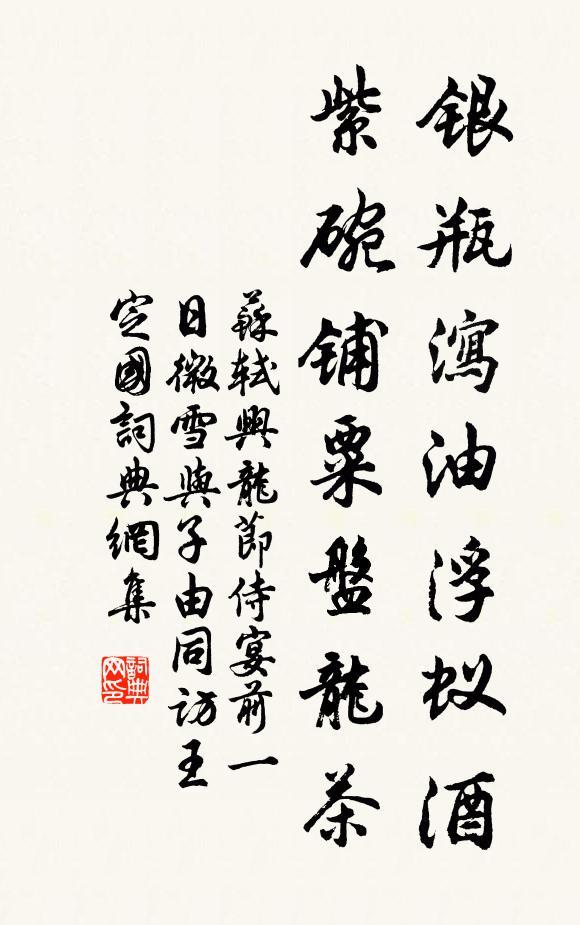 银瓶瀉油浮蚁酒
紫碗铺粟盤龍茶
蘇軾興龍節侍宴前一
日微雪與子由同访王
定國詞典網集
詞典网印